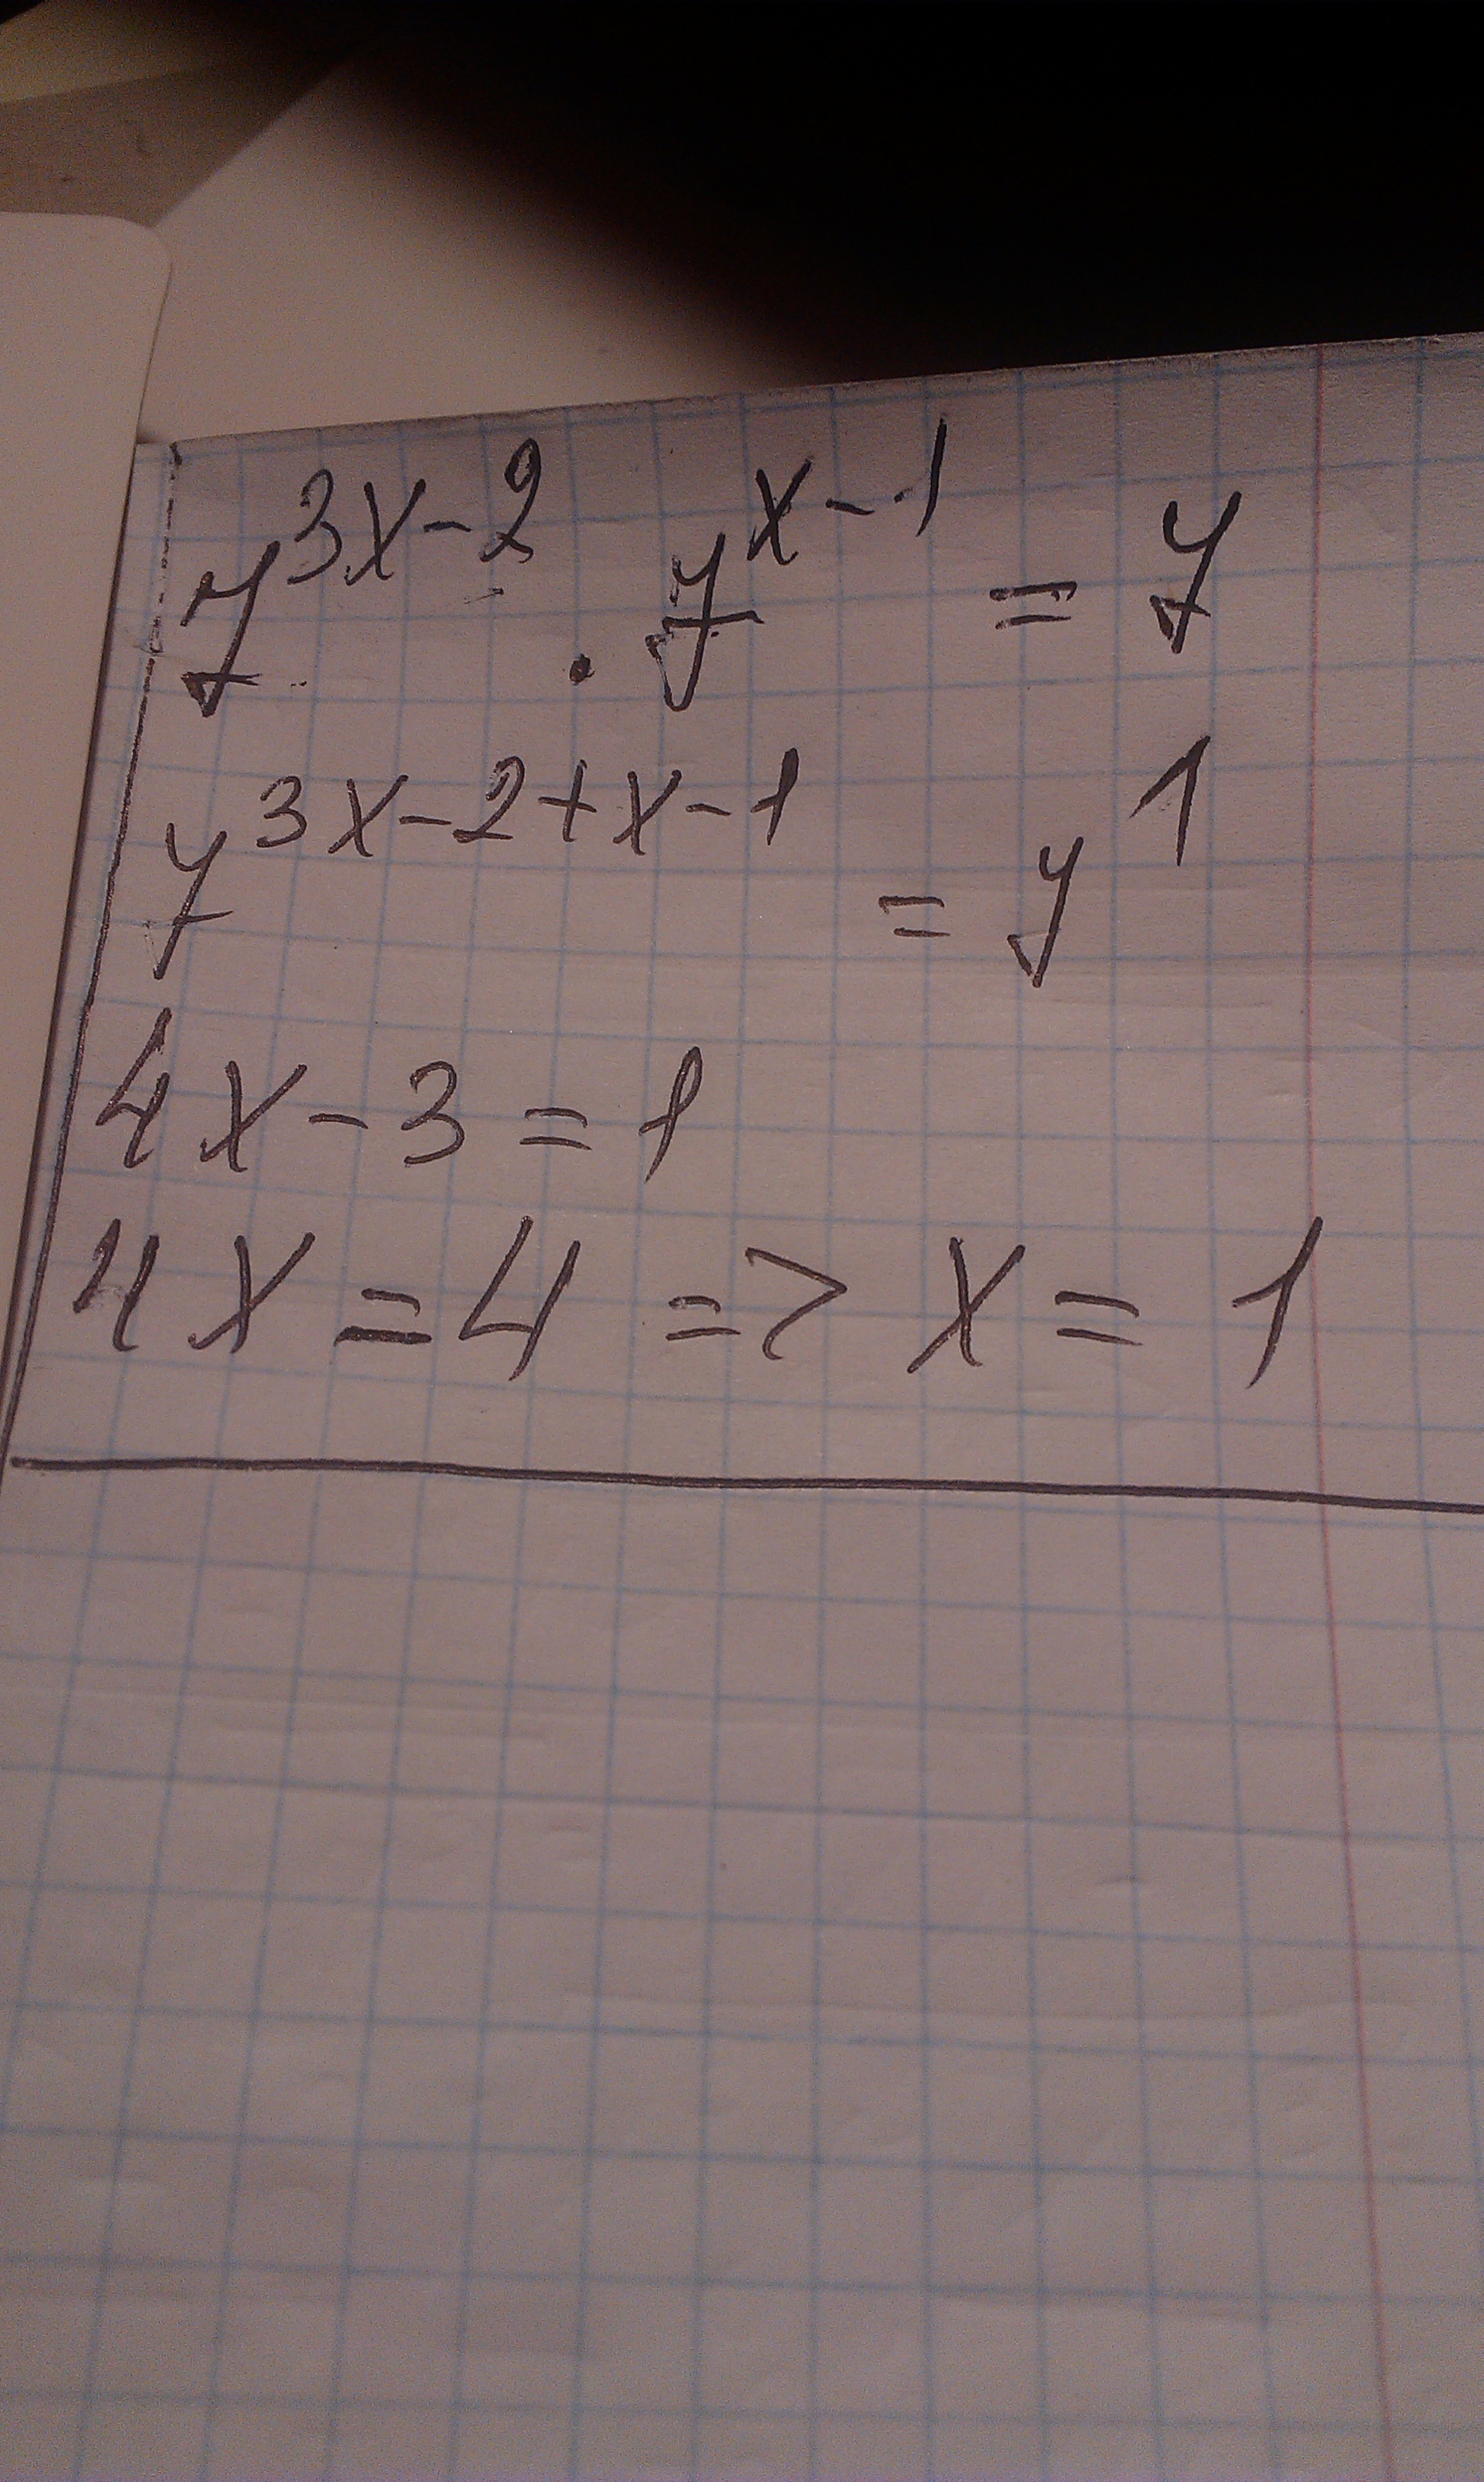 y^{3x-2} · y^{x-1} = y
y^{3x-2+x-1} = y^1
4x-3=1
4x=4 => x=1